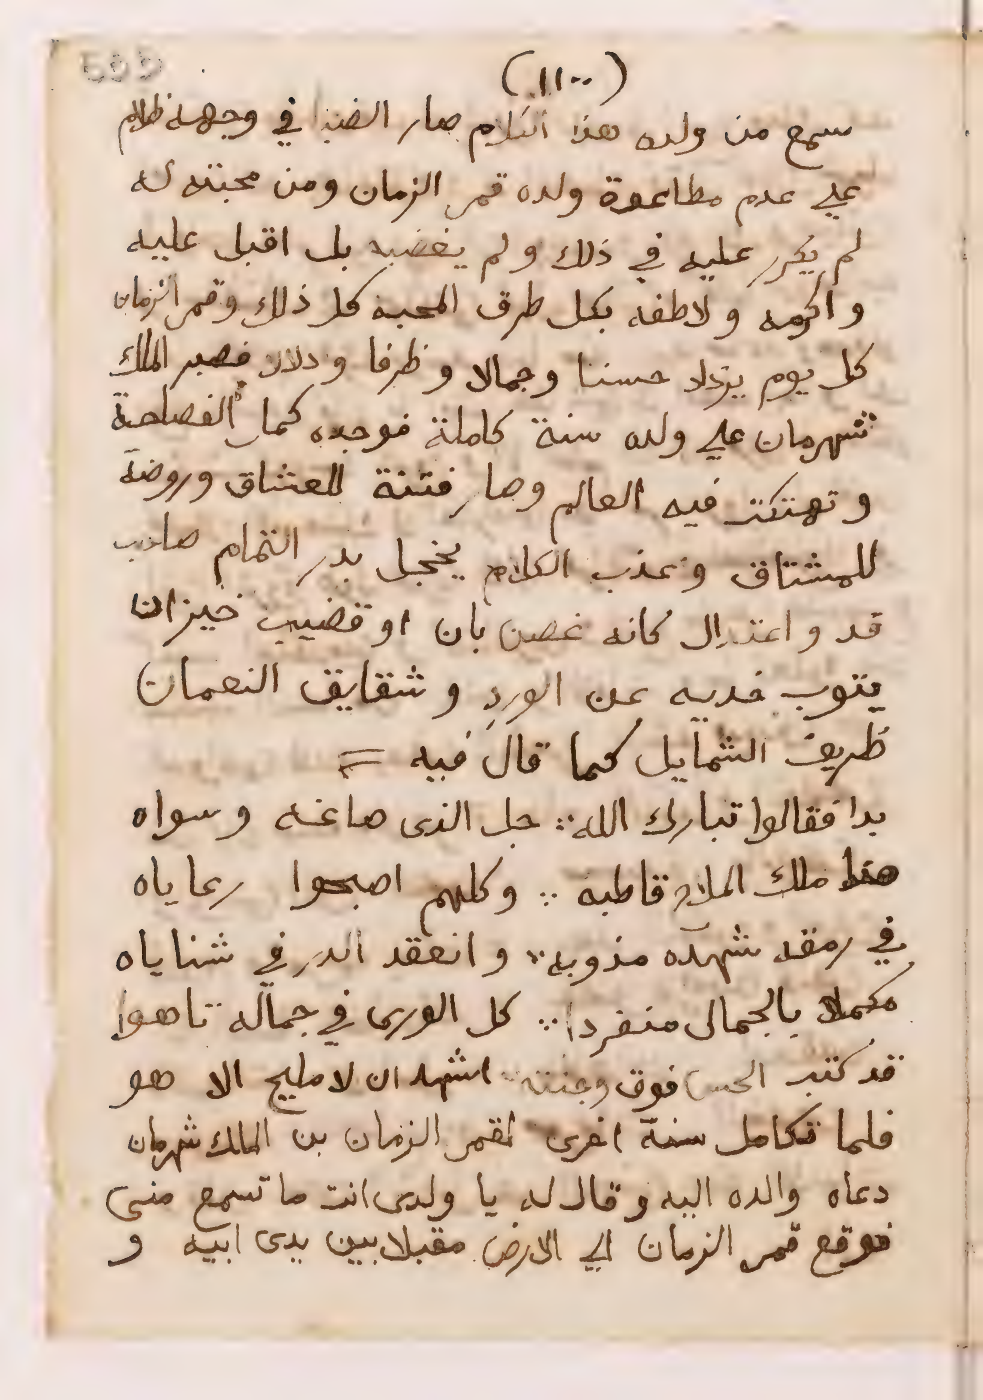 (١١٠٠)
سمع من ولده هذا الكلام صار الضيا في وجهه ظلام
علي عدم مطاعوة ولده قمر الزمان ومن محبته له
لم يكرر عليه في ذلك ولم يغضبه بل اقبل عليه
واكرمه ولاطفه بكل طرق المحبه كل ذلك وقمر الزمان
كل يوم يزداد حسنا وجمالا وظرفا ودلالا فصبر الملك
شهرمان علي ولده سنة كاملة فوجده كمل الفصاحة
وتهتكت فيه العالم وصار فتنة للعشاق وروضة
للمشتاق وعذب الكلام يخجل بدر التمام صاحب
قد واعتدال كانه غصن بان او قضيب خيزران
ينوب خديه عن الورد وشقايق النعمان
ظريف الشمايل كما قال فيه
بدا فقالوا تبارك الله ∴ جل الذى صاغه وسواه
هذا ملك الملاح قاطبه ∴ وكلهم اصبحوا رعاياه
في رمقه شهده مذوبه ∴ وانعقد الدر في شناياه
مكملا بالجمال منفردا ∴ كل الورى في جماله تاهوا
قد كتب الحسن فوق وجنته ∴ اشهد ان لا مليح الا هو
فلما تكامل سنة اخرى لقمر الزمان بن الملك شهرمان
دعاه والده اليه وقال له يا ولدى انت ما تسمع منى
فوقع قمر الزمان الي الارض مقبلا بين يدى ابيه و